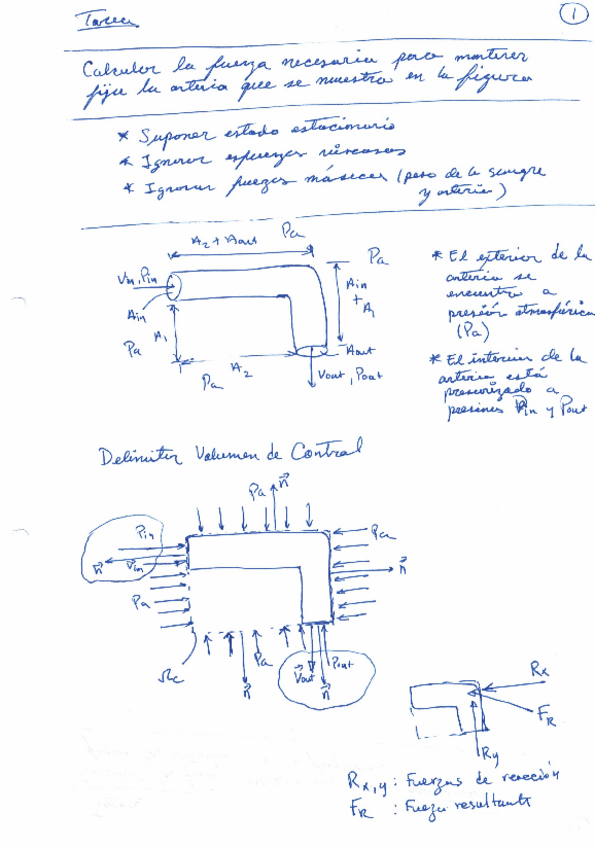 Tarea
1
Calcular la fuerza necesaria para mantener
fija la arteria que se muestra en la figura
* Suponer estado estacionario
* Ignorar esfuerzos viscosos
* Ignorar fuerzas másicas (peso de la sangre
y arteria)
A2 + Aout
Pa
Pa
Vin, Pin
Ain
Ain
+
A1
A1
Pa
Aout
A2
Pa
Vout, Pout
* El exterior de la
arteria se
encuentra a
presión atmosférica
(Pa)
* El interior de la
arteria está
presurizado a
presiones Pin y Pout
Delimitar Volumen de Control
Pa
n
Pin
Pa
n
Vin
n
Pa
Ωc
Pa
n
Vout
Pout
n
Rx
FR
Ry
Rx,y : Fuerzas de reacción
FR : Fuerza resultante